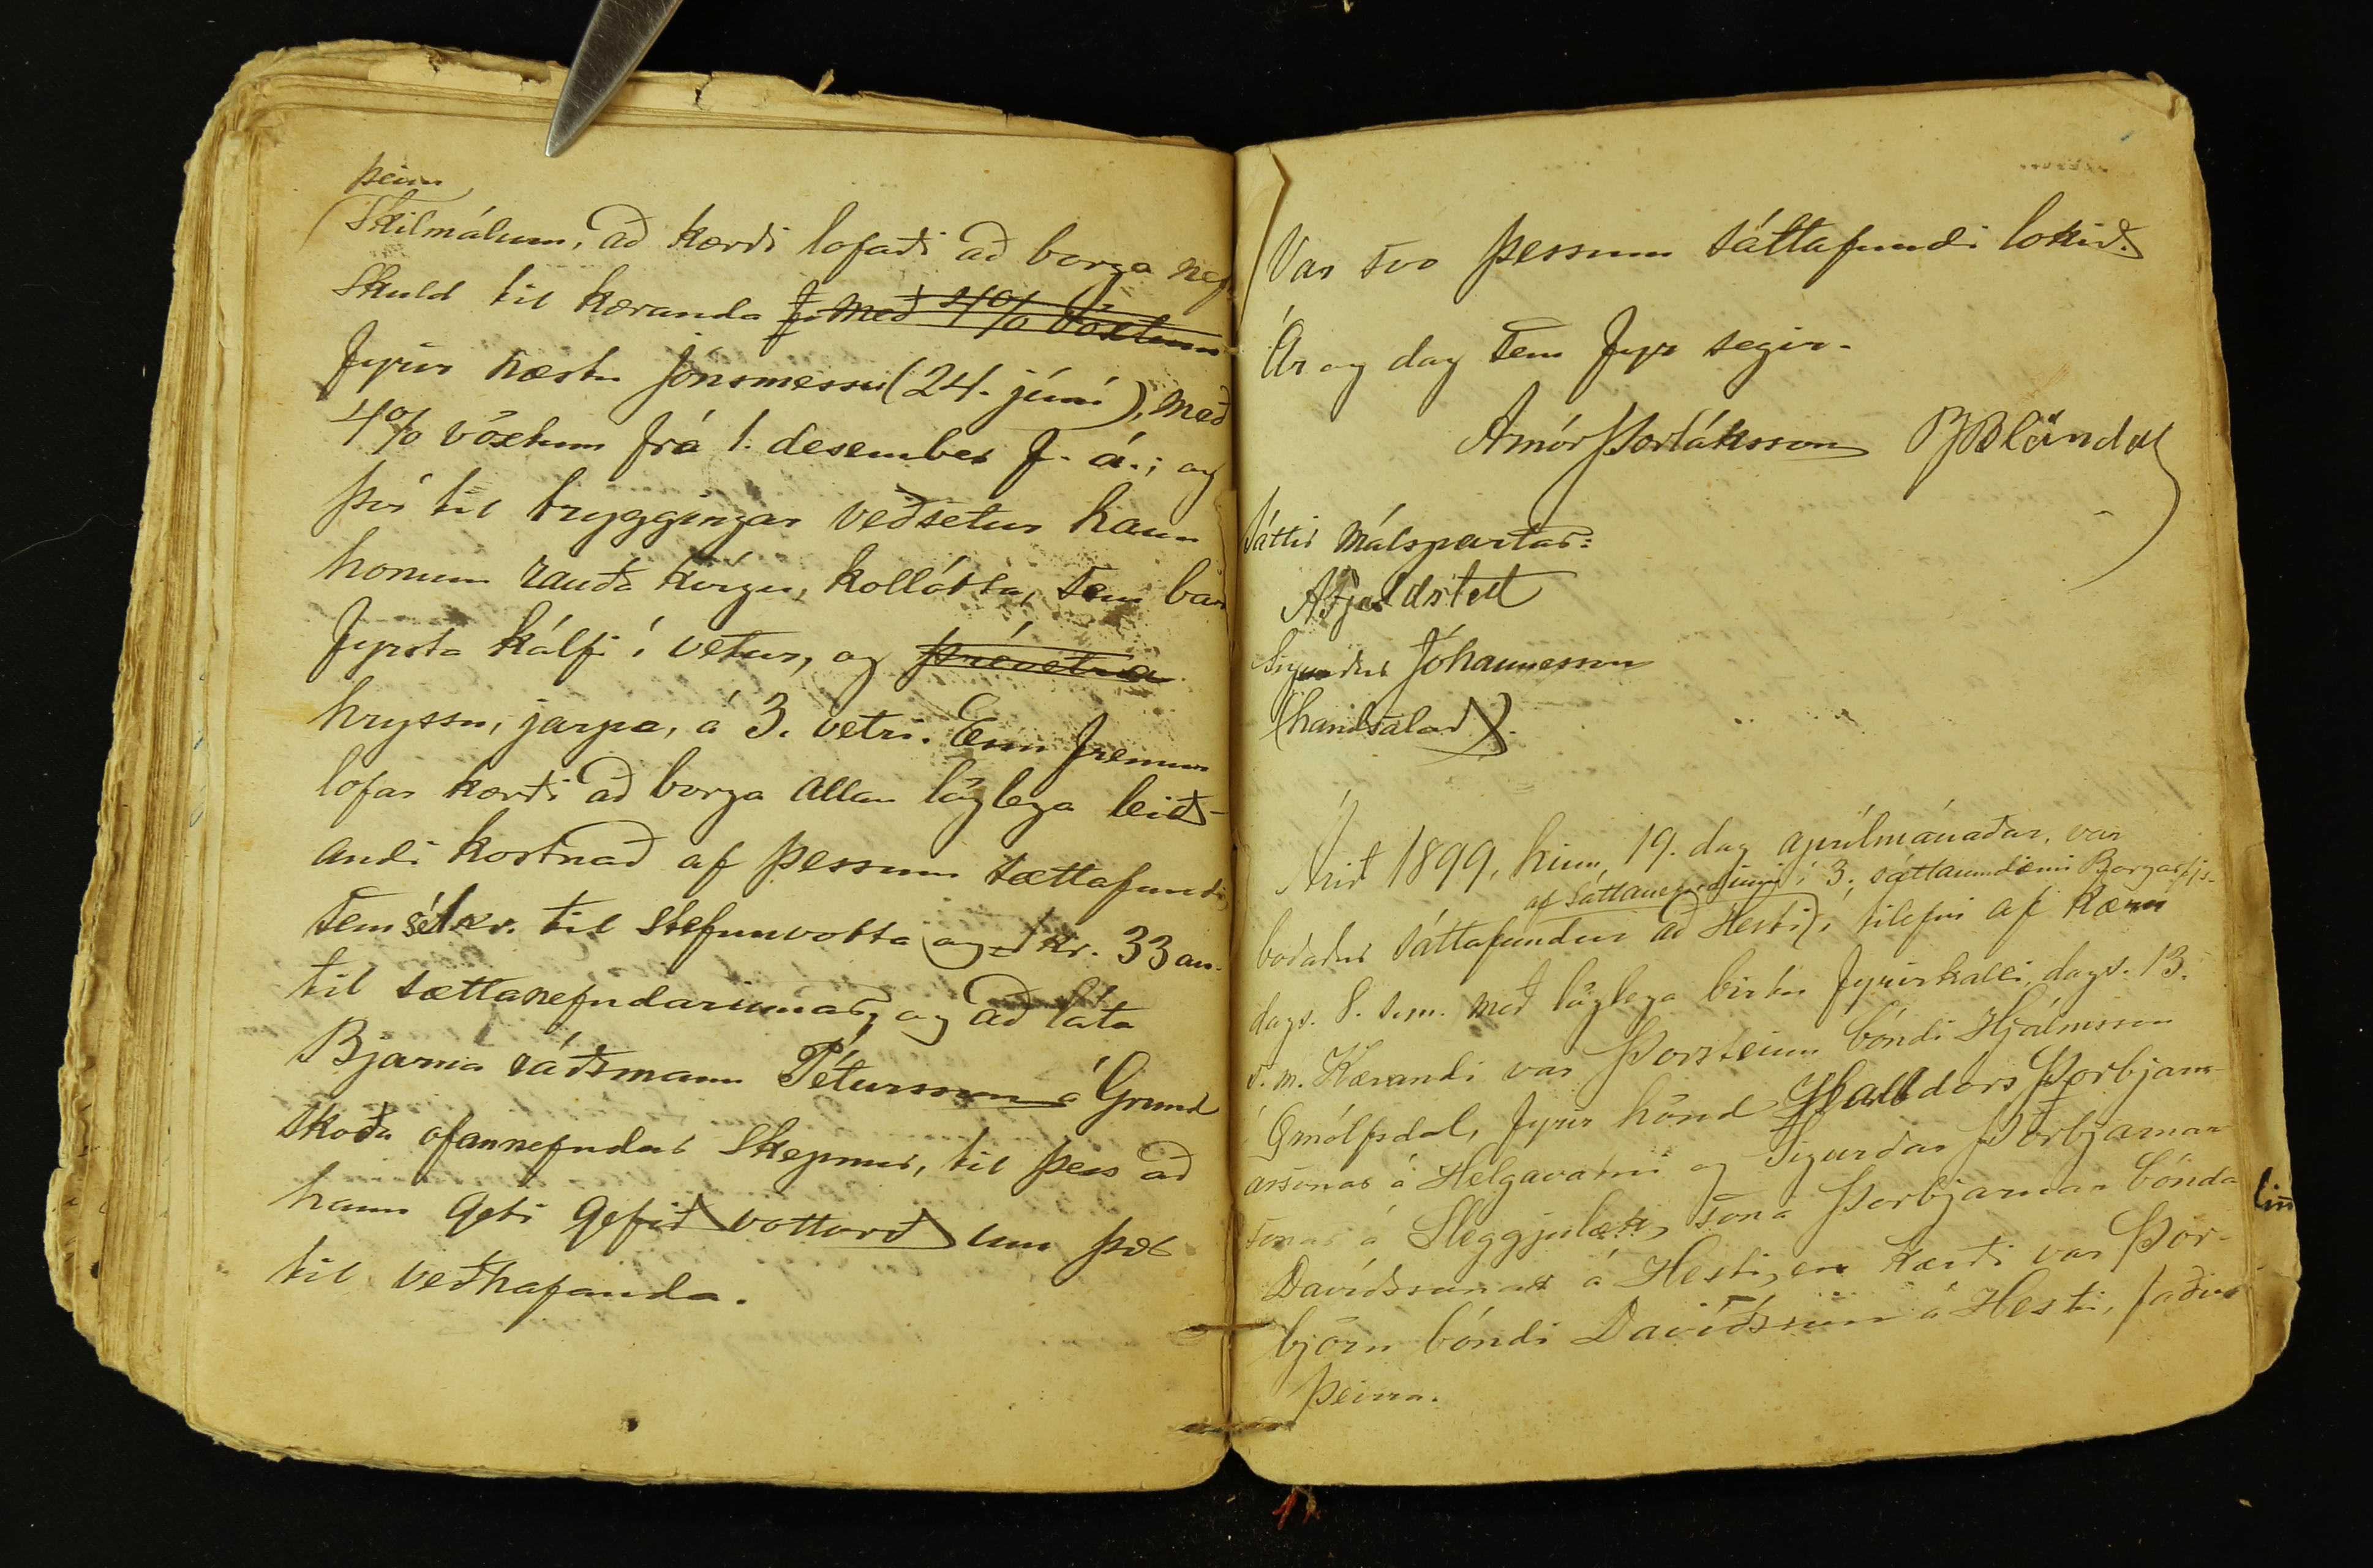 þeim
skilmálum, að kærði lofaði að borga nef
skuld til kæranda f. með 4% vöxtum
fyrir næstu Jónsmessu (24. júní), með
4% vöxtum frá 1. desember f. á.; og
því til tryggingar veðsetur hann
honum rauða kvígu, kollótta, sem bar
fyrsta kálfi í vetur, og þrévetra
hryssu, jarpa, á 3. vetri. Enn fremur
lofar kærði að borga allan löglega leið-
andi kostnað af þessum sættafundi
sem sé 1 kr. til stefnuvotta og kr. 33 au.
til sættanefndarinnar, og að láta
Bjarna ráðsmann Pétursson á Grund
skoða ofannefndar skepnur, til þess að
hann geti gefið vottorð um þær
til veðhafanda.
Var svo þessum sáttafundi lokið.
Ár og dag sem fyr segir.
Arnór Þorláksson BBlöndal
Sáttir málspartar:
AFjeldsted
Sigurður Jóhannesson
(handsalað).
Árið 1899, hinn 19. dag aprílmánaðar, var
af sáttanefndinni í 3. sáttaumdæmi Borgarfjs.
boðaður sáttafundur að Hesti, í tilefni af kæru
dags. 8. s.m. með löglega birtu fyrirkalli, dags. 13.
s. m. Kærandi var Þorsteinn bóndi Hjálmsson
í Örnólfsdal, fyrir hönd Halldórs Þorbjarn-
arsonar á Helgavatni og Sigurðar Þorbjarnar
sonar á Sleggjulæk, sona Þorbjarnar bónda
Davíðssonar á Hesti, en kærði var Þor-
björn bóndi Davíðsson á Hesti, faðir
þeirra.